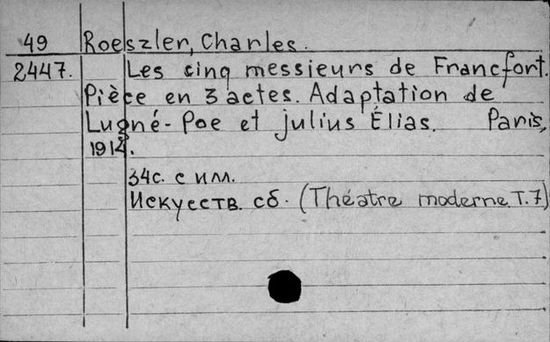 49 Roeszler, Charles.
2447. Les cinq messieurs de Francfort.
Pièce en 3 actes. Adaptation de
Lugné-Poe et Julius Élias. Paris,
1912.
34с. с илл.
Искусств. сб. (Théatre moderne T.7)